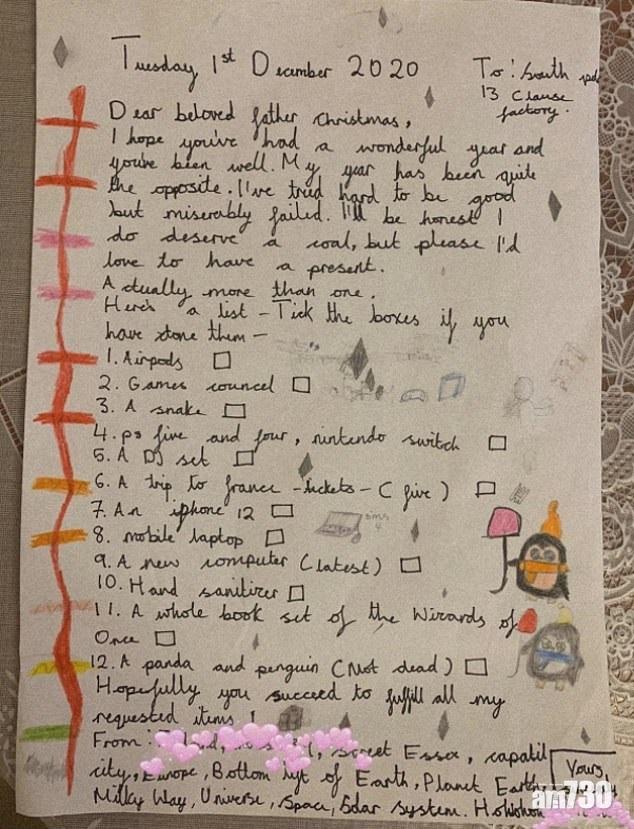 Tuesday 1st December 2020
To: South
13 Clause
factory.
Dear beloved father Christmas,
I hope you've had a wonderful year and
you've been well. My year has been quite
the opposite. I've tried hard to be good
but miserably failed. I'll be honest I
do deserve a coal, but please I'd
love to have a present.
Actually more than one.
Here's a list - Tick the boxes if you
have done them -
1. Airpods
2. Games councel
3. A snake
4. ps five and four, nintendo switch
5. A DJ set
6. A trip to france - tickets - (five)
7. An iphone 12
8. mobile laptop
9. A new computer (latest)
10. Hand sanitizer
11. A whole book set of the Wizards of
Once
12. A panda and penguin (Not dead)
Hopefully you succeed to fulfill all my
requested items!
From:
city, Europe, Bottom of Earth, Planet Earth
Milky Way, Universe, Space, Solar system.
Yours
am730